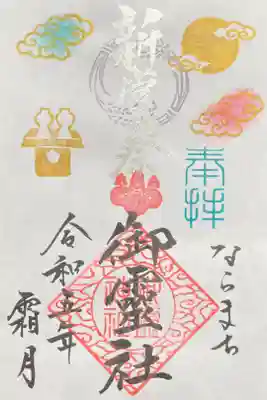 新嘗祭
奉拝
ならまち
御霊社
令和五年
霜月